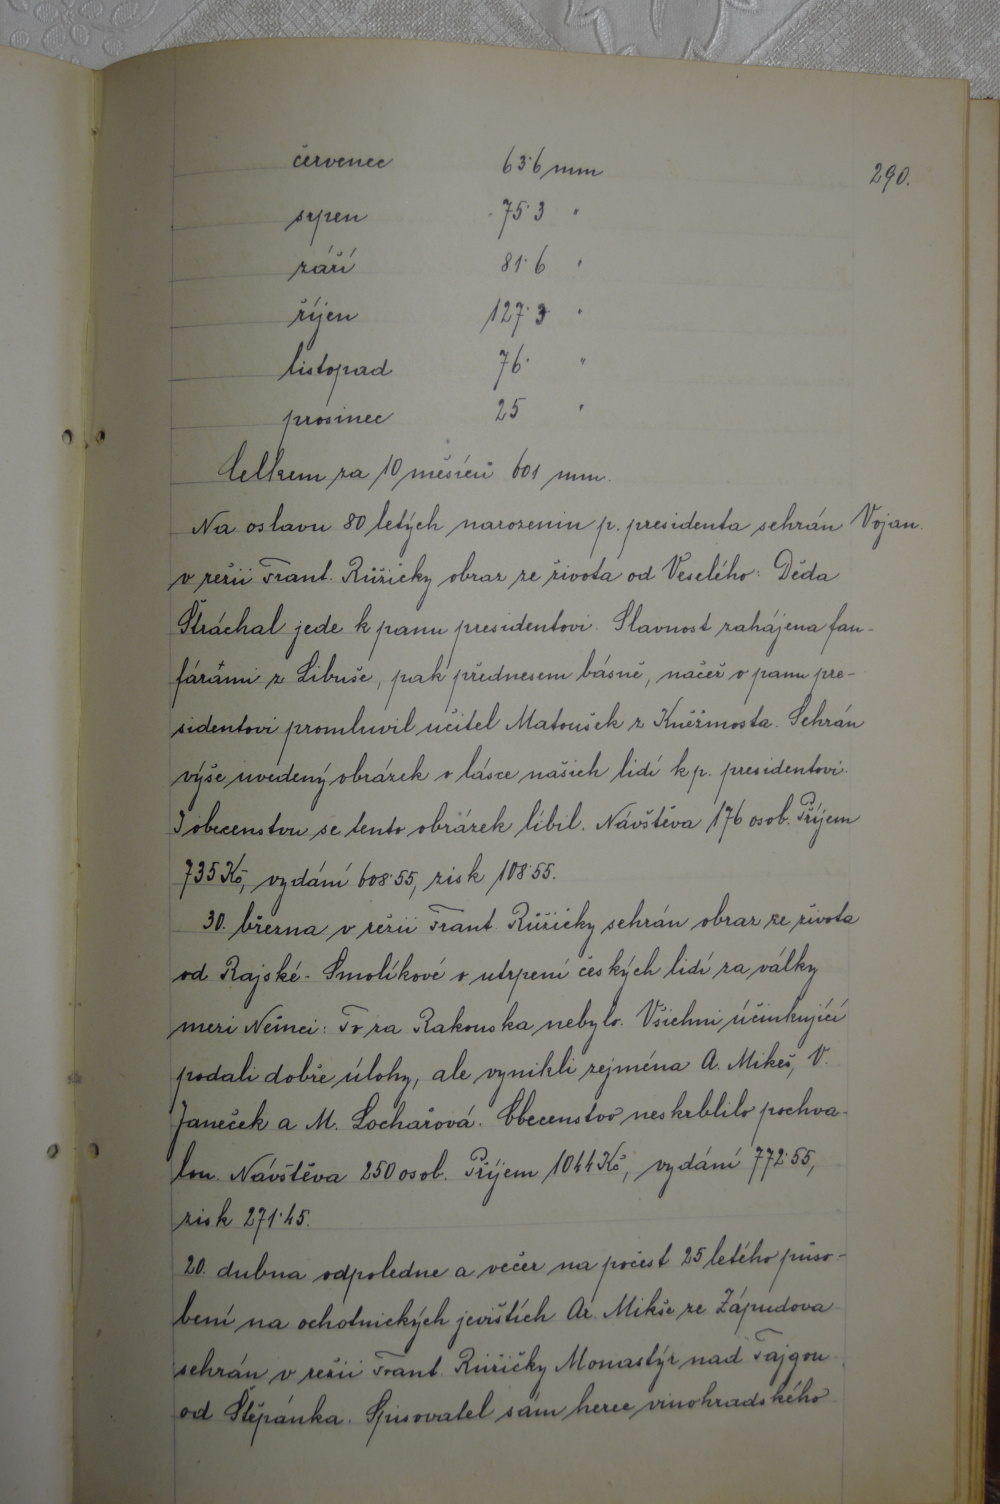 290.
červenec 63·6 mm
srpen 75·3 "
září 81·6 "
říjen 127·3 "
listopad 76· "
prosinec 25 "
Celkem za 10 měsíců 601 mm.
Na oslavu 80 letých narozenin p. presidenta sehrán Vojan.
v režii Frant. Růžičky obraz ze života od Veselého: Děda
Štráchal jede k panu presidentovi. Slavnost zahájena fan-
fárami z Libuše, pak přednesem básně, načež o panu pre-
sidentovi promluvil učitel Matoušek z Kněžmosta. Sehrán
výše uvedený obrázek o lásce našich lidí k p. presidentovi.
I obecenstvu se tento obrázek líbil. Návštěva 176 osob. Příjem
735 Kč, vydání 608·55, zisk 108·55.
30. března v režii Frant. Růžičky sehrán obraz ze života
od Rajské-Smolíkové o utrpení českých lidí za války
mezi Němci: To za Rakouska nebylo. Všichni účinkující
podali dobře úlohy, ale vynikli zejména A. Mikeš, V.
Janeček a M. Lochařová. Obecenstvo neskrblilo pochva-
lou. Návštěva 250 osob. Příjem 1044 Kč, vydání 772·55,
zisk 271·45.
20. dubna odpoledne a večer na počest 25 letého půso-
bení na ochotnických jevištích Ar. Mikše ze Zápudova
sehrán v režii Frant. Růžičky Monastýr nad Tajgou
od Štěpánka. Spisovatel sám herec vinohradského